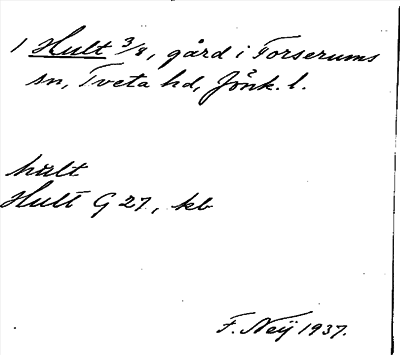 1 Hult 3/8, gård i Forserums
sn, Tveta hd, Jönk. l.
hult
Hult G 27, kb
F. Neij 1937.